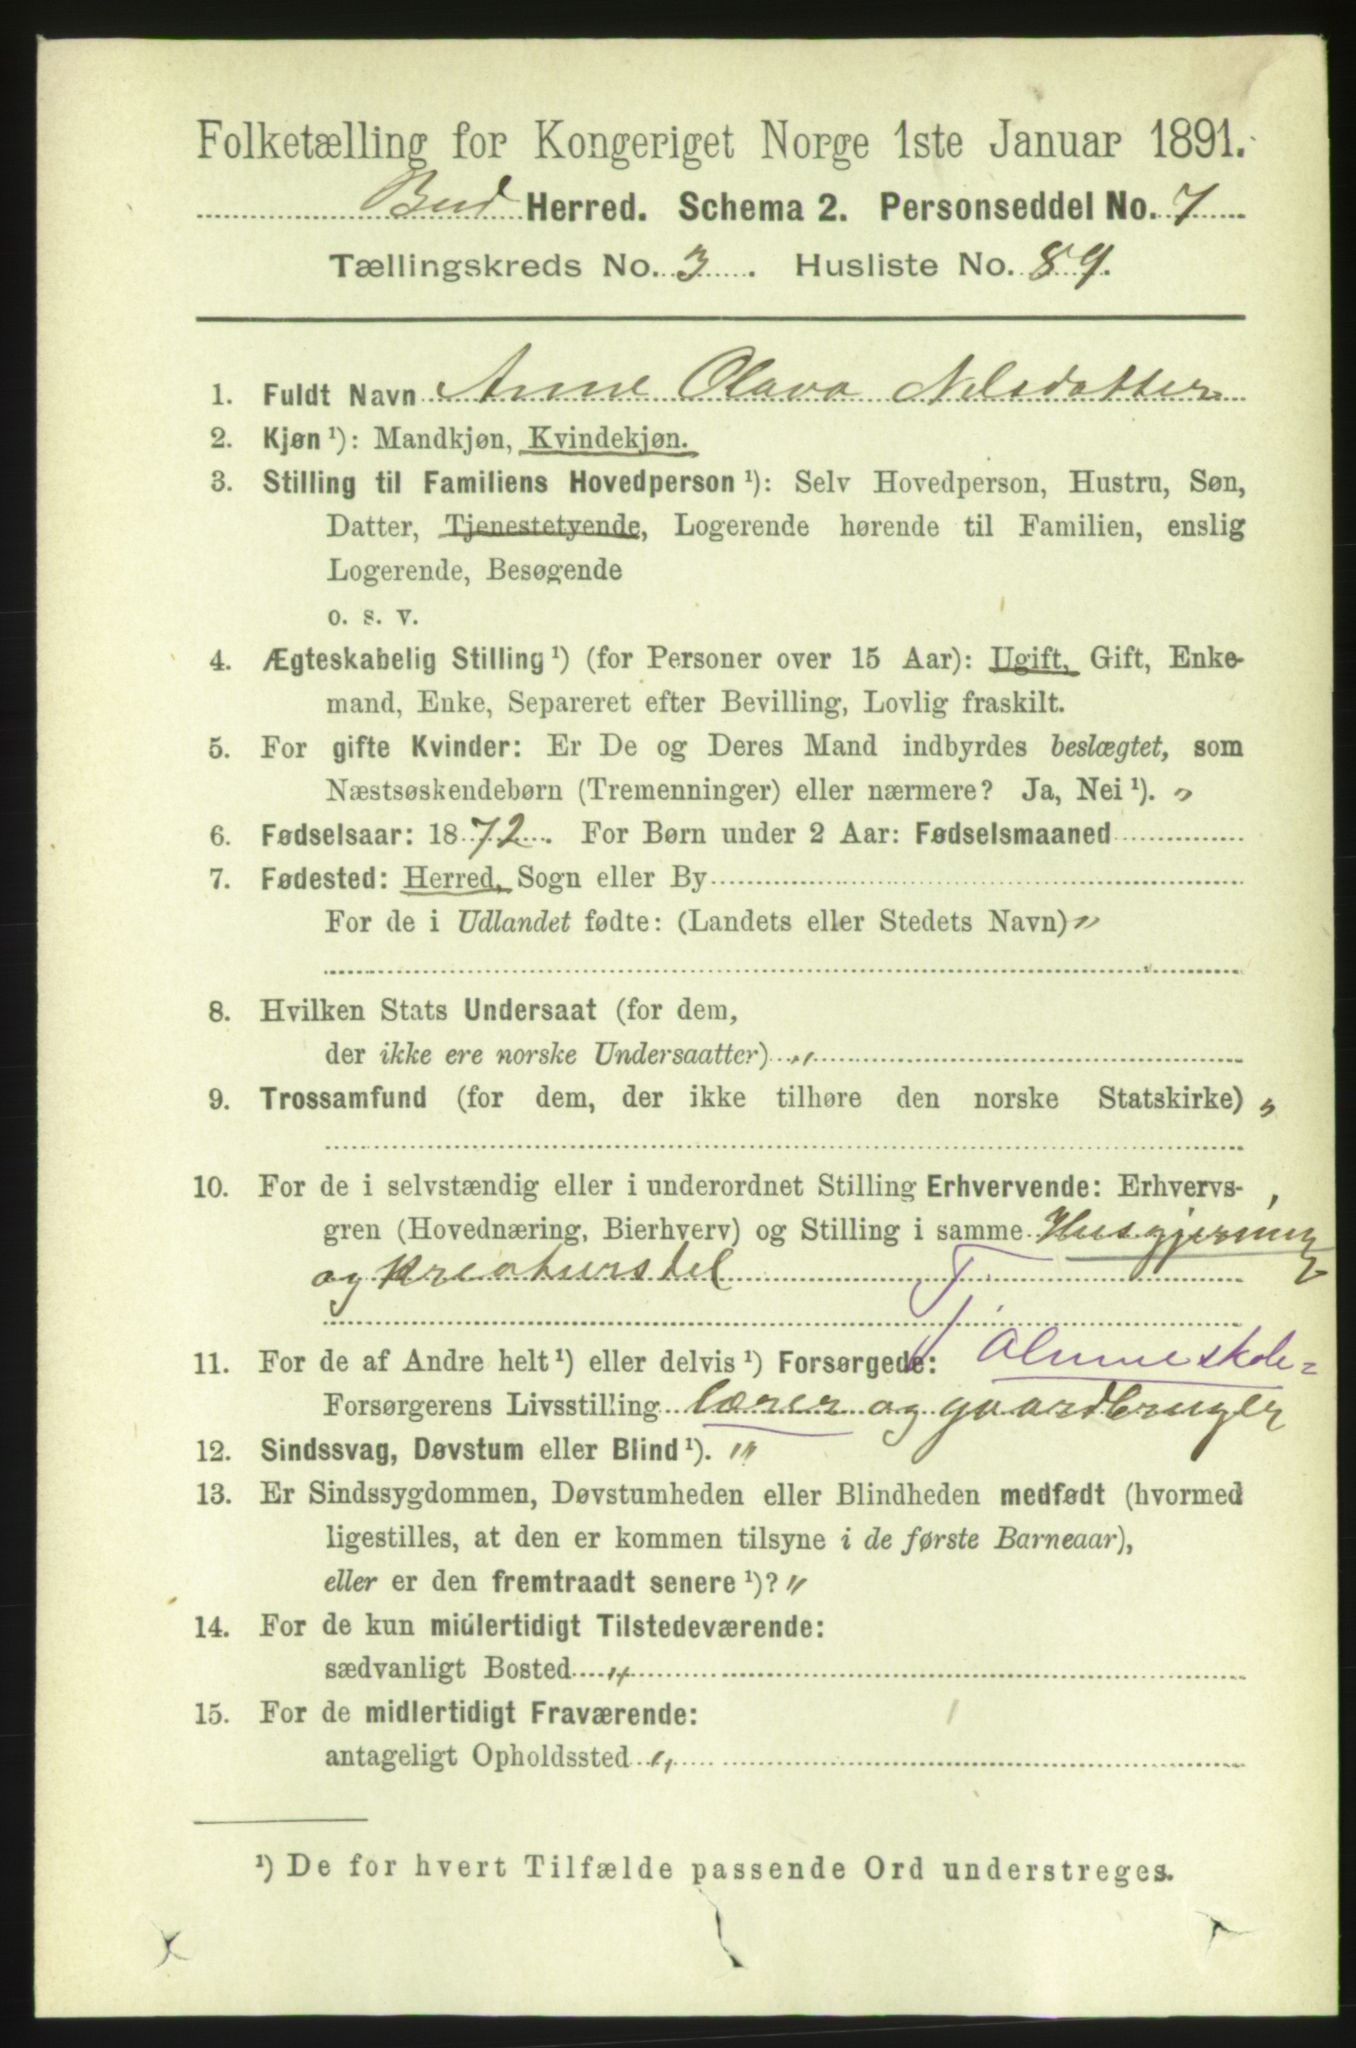 Folketælling for Kongeriget Norge 1ste Januar 1891.
Bud Herred. Schema 2. Personseddel No. 7
Tællingskreds No. 3. Husliste No. 89.
1. Fuldt Navn Anne Olava Nilsdatter
2. Kjøn ¹): Mandkjøn, Kvindekjøn.
3. Stilling til Familiens Hovedperson ¹): Selv Hovedperson, Hustru, Søn,
Datter, Tjenestetyende, Logerende hørende til Familien, enslig
Logerende, Besøgende
o. s. v.
4. Ægteskabelig Stilling ¹) (for Personer over 15 Aar): Ugift, Gift, Enke-
mand, Enke, Separeret efter Bevilling, Lovlig fraskilt.
5. For gifte Kvinder: Er De og Deres Mand indbyrdes beslægtet, som
Næstsøskendebørn (Tremenninger) eller nærmere? Ja, Nei ¹). "
6. Fødselsaar: 1872. For Børn under 2 Aar: Fødselsmaaned
7. Fødested: Herred, Sogn eller By
For de i Udlandet fødte: (Landets eller Stedets Navn) "
8. Hvilken Stats Undersaat (for dem,
der ikke ere norske Undersaatter) "
9. Trossamfund (for dem, der ikke tilhøre den norske Statskirke) "
10. For de i selvstændig eller i underordnet Stilling Erhvervende: Erhvervs-
gren (Hovednæring, Bierhverv) og Stilling i samme Husgjerning
og Kreaturstel T
11. For de af Andre helt ¹) eller delvis ¹) Forsørgede: Almueskole=
Forsørgerens Livsstilling lærer og gaardbruger
12. Sindssvag, Døvstum eller Blind ¹). "
13. Er Sindssygdommen, Døvstumheden eller Blindheden medfødt (hvormed
ligestilles, at den er kommen tilsyne i de første Barneaar),
eller er den fremtraadt senere ¹)? "
14. For de kun midlertidigt Tilstedeværende:
sædvanligt Bosted "
15. For de midlertidigt Fraværende:
antageligt Opholdssted "
¹) De for hvert Tilfælde passende Ord understreges.